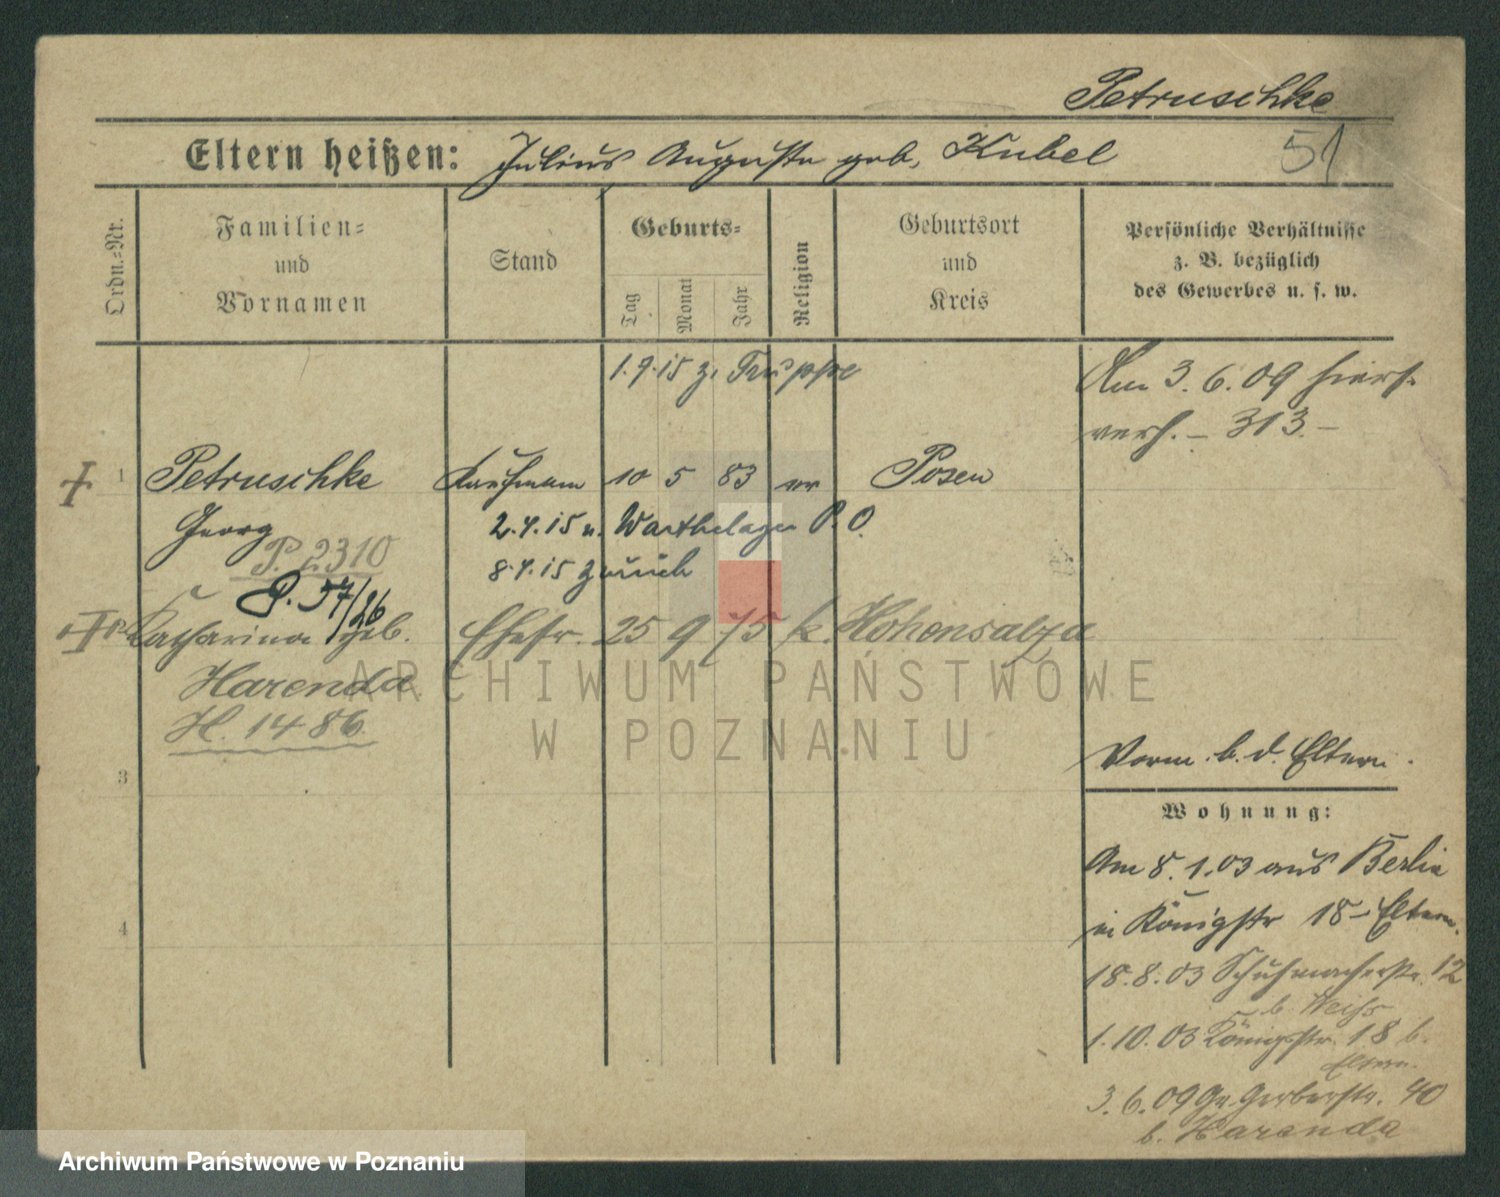 Petruschke
51
Eltern heißen: Julius Auguste geb. Kubel
Ordn.=Nr.
Familien=
und
Vornamen
Stand
Geburts=
Tag
Monat
Jahr
Religion
Geburtsort
und
Kreis
Persönliche Verhältnisse
z. B. bezüglich
des Gewerbes u. s. w.
1.9.15 z. Truppe
Am 3.6.09 hiers.
verh. – 313 –
1 Petruschke Kaufmann 10 5 83 ev Posen
Georg 2.4.15 n. Warthelager P. O.
P. 2310
8.4.15 zurück
P. 57/26
Katharina geb. Ehefr. 25 9 75 k. Hohensalza
Harenda
H. 1486
ARCHIWUM PAŃSTWOWE
W POZNANIU
Vorm. b. d. Eltern.
3
Wohnung:
Am 8.1.03 aus Berlin
in Königstr 18 – Eltern.
4
18.8.03 Schuhmacherstr. 12
b. Weiss
1.10.03 Königstr. 18 b.
Eltern.
3.6.09 Gr. Gerberstr. 40
b. Harenda
Archiwum Państwowe w Poznaniu